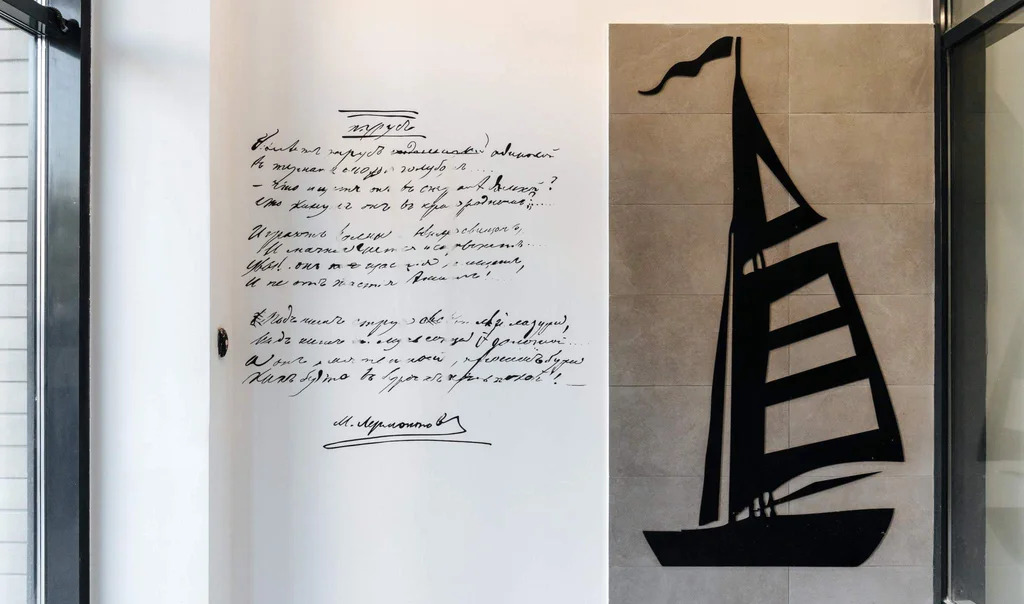 парусъ
Бѣлѣетъ парусъ одинокой
Въ туманѣ моря голубомъ. . .
– Что ищетъ онъ въ странѣ далекой?
Что кинулъ онъ въ краю родномъ? . . .
Играютъ волны
И мачта гнется и скрыпитъ . . .
Увы! онъ не счастія ищетъ,
И не отъ счастія бѣжитъ! . . .
Подъ нимъ струя свѣтлѣй лазури,
Надъ нимъ лучъ солнца золотой . . .
А онъ мятежной проситъ бури
Какъ будто въ буряхъ покой! –
М. Лермонтовъ